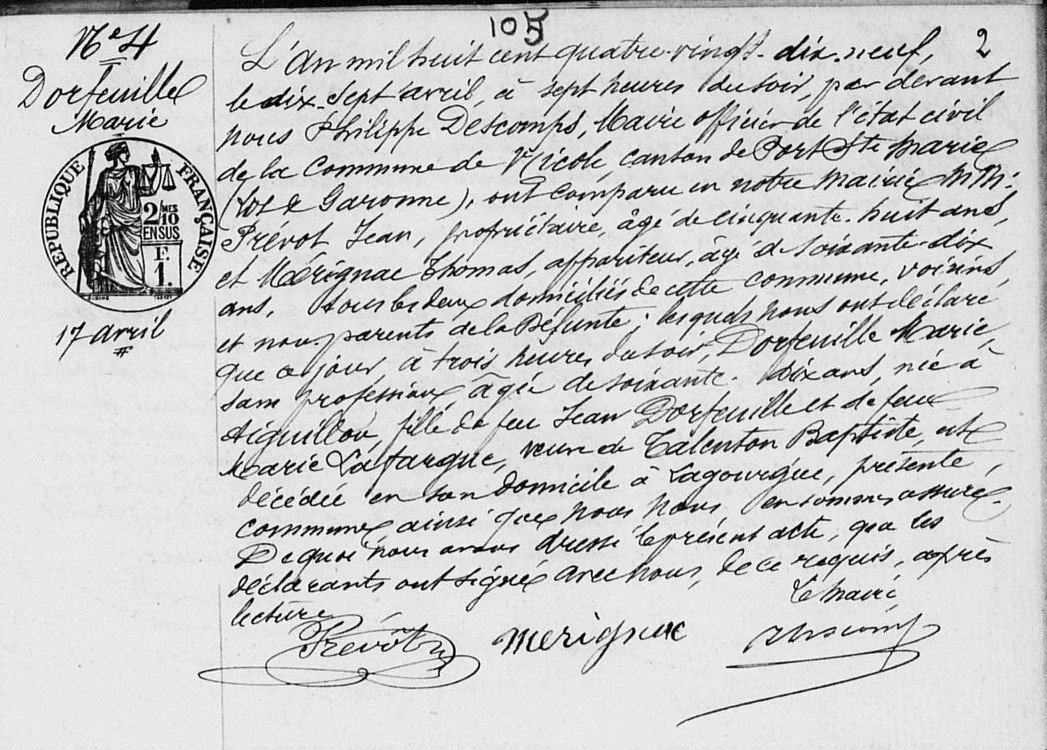 105
2
N° 4
Dorfeuille
Marie
RÉPUBLIQUE FRANÇAISE
2/MES
10
EN SUS
1F.
17 avril
L'An mil huit cent quatre-vingt-dix-neuf,
le dix-sept avril, à sept heures du soir, par devant
nous Philippe Descomps, Maire officier de l'état civil
de la commune de Nicole, canton de Port Ste Marie
(Lot & Garonne), ont comparu en notre mairie MM:
Prévot Jean, propriétaire, âgé de cinquante-huit ans,
et Mérignac Thomas, appariteur, âgé de soixante-dix
ans, tous les deux domiciliés de cette commune, voisins,
et non parents de la Défunte; lesquels nous ont déclaré
que ce jour, à trois heures du soir, Dorfeuille Marie,
sans profession, âgée de soixante-dix ans, née à
Aiguillon, fille de feu Jean Dorfeuille et de feue
Marie Lafargue, veuve de Talenton Baptiste, est
décédée en son domicile à Lagourgue, présente
commune, ainsi que nous nous en sommes assuré.
De quoi nous avons dressé le présent acte, que les
déclarants ont signé avec nous, de ce requis, après
lecture.
Le Maire
Prévot Mérignac Descomps